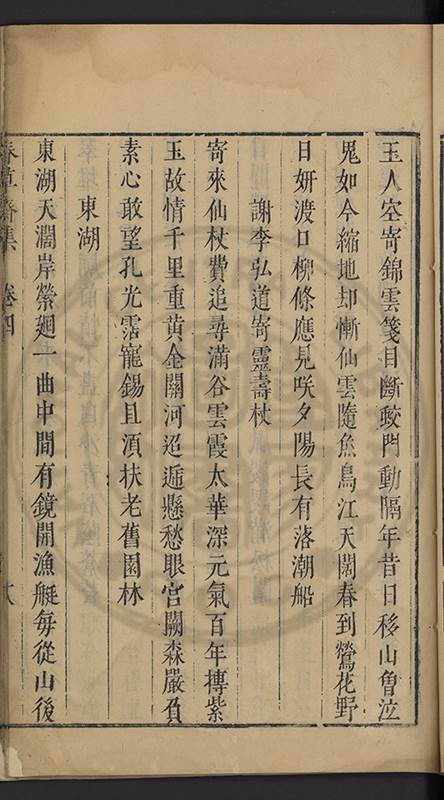 玉人空寄錦雲箋目斷蛟門動隔年昔日移山曾泣
鬼如今縮地却慚仙雲隨魚鳥江天闊春到鶯花野
日妍渡口柳條應見咲夕陽長有落潮船
謝李弘道寄靈壽杖
寄來仙杖費追尋滿谷雲霞太華深元氣百年摶紫
玉故情千里重黃金關河迢遞懸愁眼宮闕森嚴負
素心敢望孔光霑寵錫且須扶老舊園林
東湖
東湖天濶岸縈廻一曲中間有鏡開漁艇每從山後
春草齋集 卷四